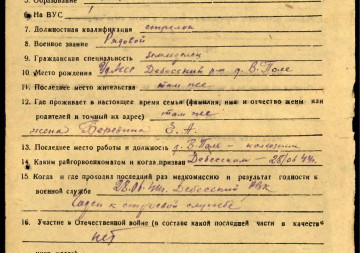 5. Образование
6. На ВУС 1
7. Должностная квалификация стрелок
8. Военное звание Рядовой
9. Гражданская специальность земледелец
10. Место рождения Дебесский р-н д. В. Поле
11. Последнее место жительства там же
12. Где проживает в настоящее время семья (фамилия, имя и отчество жены или
родителей и точный их адрес) там же
жена Бередина Е. А.
13. Последнее место работы и должность д. В. Поле - колхозник
14. Каким райгорвоенкоматом и когда призван Дебесским - 28/06 44г.
15. Когда и где проходил последний раз медкомиссию и результат годности к
военной службе 28.06.44г. Дебесский РВК
Годен к строевой службе
16. Участие в Отечественной войне (в составе какой последней части в качестве
нет